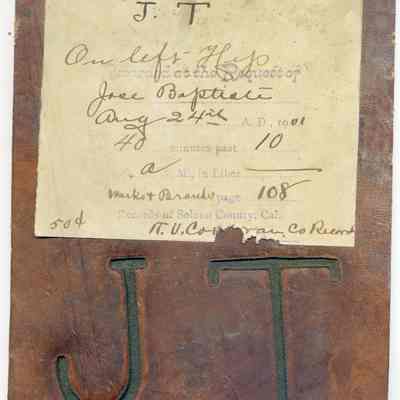 J. T
On left Hip
Recorded at the Request of
Jose Baptiste
Aug 24th A.D., 1901
40 minutes past 10
a M., in Liber
Marks & Brands page 108
Records of Solano County, Cal.
50¢ Co Record
J T